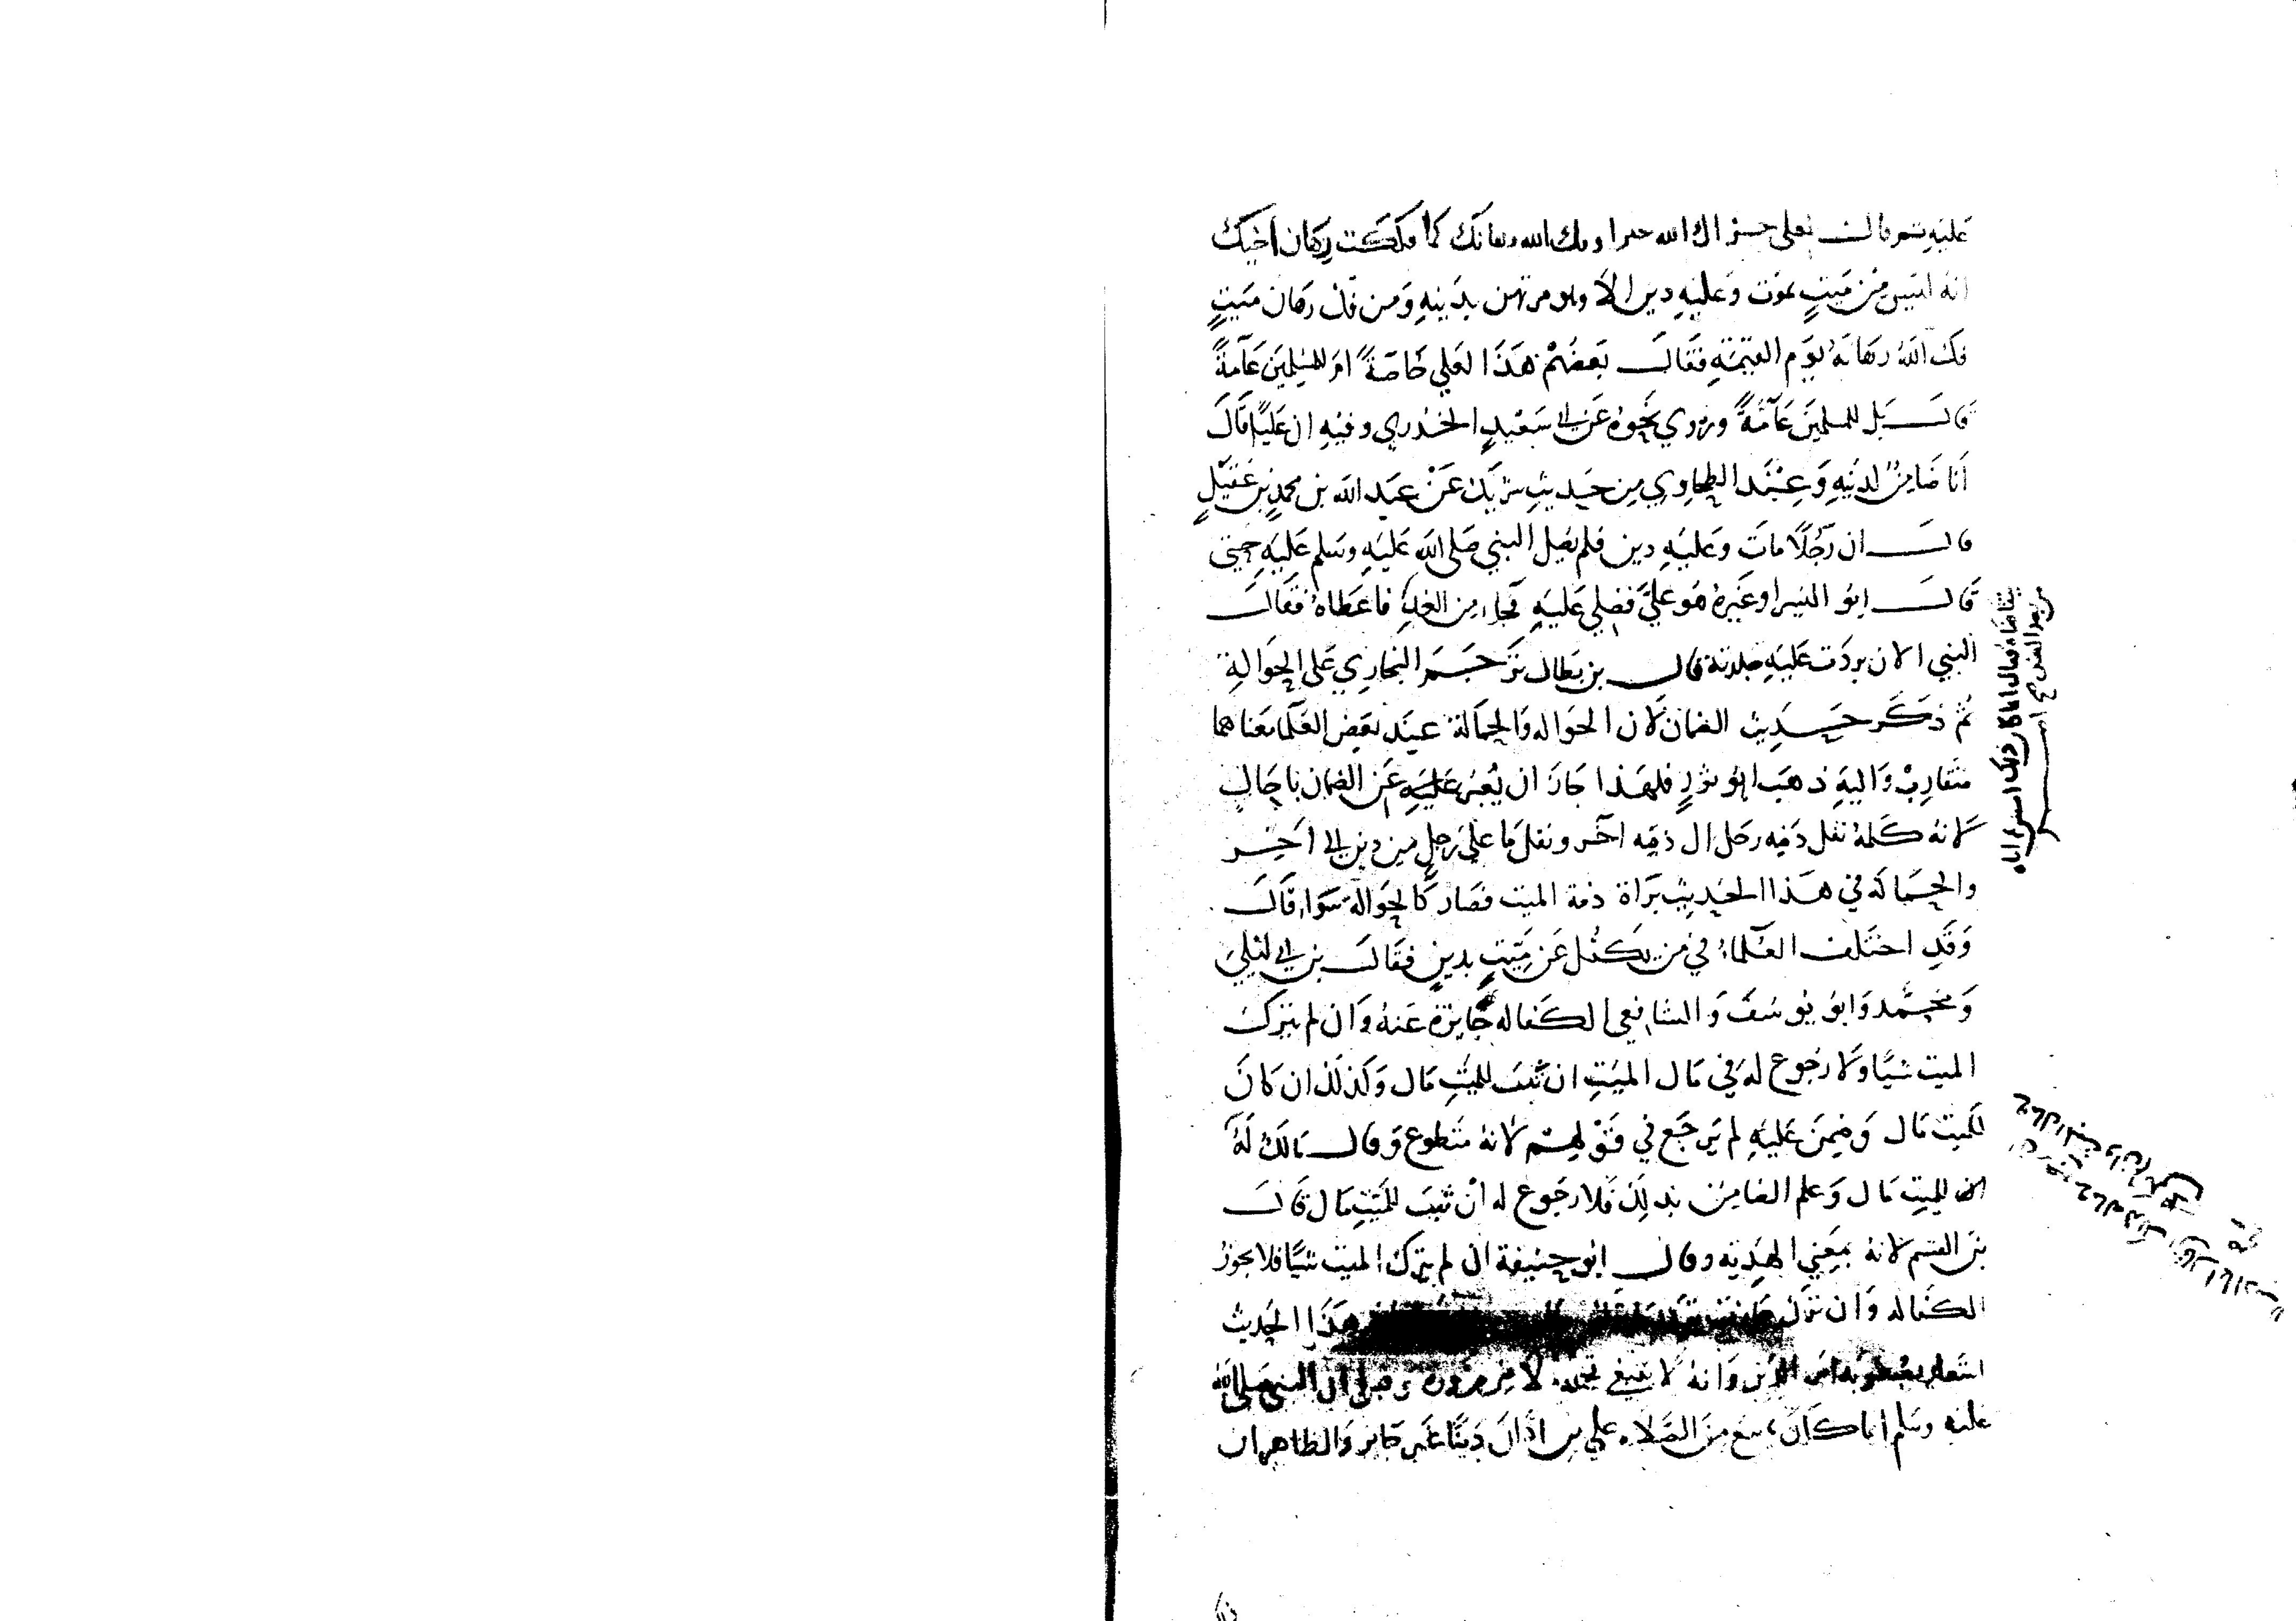 عليه ثم قال لعلي جزاك الله خيرا وفك الله رهانك كما فككت رهان اخيك
انه ليس من ميت يموت وعليه دين الا وهو مرتهن بدينه ومن فك رهان ميت
فك الله رهانه يوم القيمة فقال بعضهم هذا لعلي خاصة ام للمسلمين عامة
قال بل للمسلمين عامة وروي نحوه عن ابي سعيد الخدري وفيه ان عليا قال
انا ضامن لدينه وعند الطحاوي من حديث شريك عن عبد الله بن محمد بن عقيل
قال ان رجلا مات وعليه دين فلم يصل النبي صلى الله عليه وسلم عليه حتى
قال ابو اليسر او غيره هو علي فصلي عليه فجاء من الغد فاعطاه فقال
النبي الان بردت عليه جلدته قال بن بطال ترجم البخاري على الحوالة
ثم ذكر حديث الضمان لان الحواله والحمالة عند بعض العلما معناهما
متقارب واليه ذهب ابو ثور فلهذا جاز ان يعبر عليه عن الضمان باحال
لانه كله نقل ذمه رجل الى ذمه آخر ونقل ما على رجل من دين الى اخر
والحماله في هذا الحديث براة ذمة الميت فصار كالحواله سوا، قال
وقد اختلف العلماء في من يكفل عن ميت بدين فقال بن ابي ليلى
ومحمد وابو يوسف والشافعي الكفاله جايزة عنه وان لم يترك
الميت شيا ولا رجوع له في مال الميت ان ثبت للميت مال وكذلك ان كان
للميت مال وضمن عليه لم يرجع في قولهم لانه متطوع وقال مالك له
للميت مال وعلم الضامن بذلك فلا رجوع له ان ثبت للميت مال قال
بن القسم لانه بمعني الهديه وقال ابو حنيفة ان لم يترك الميت شيا فلا يجوز
الكفاله وان ترك هذا الحديث
امر الدين وانه لا ينبغي تحمله الا من ضرورة ان النبي صلى الله
عليه وسلم انما كان من الصلاه علي من ادان دينا غير جايز والظاهر ان